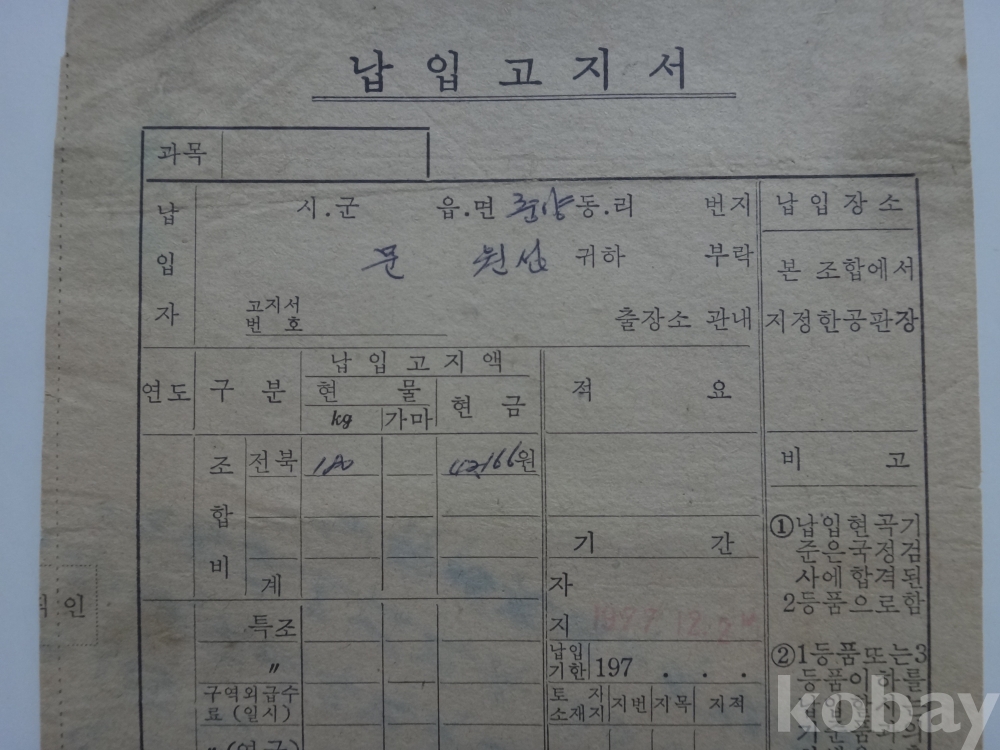 납 입 고 지 서
과목
납 입 자
시.군 읍.면 동.리 번지
문 원섭 귀하 부락
고지서 번 호
출장소 관내
납 입 장 소
본 조합에서
지정한공판장
연도 구 분 납 입 고 지 액
현 물 현 금
kg 가마
적 요
조 합 비
전북 180 42,166원
계
비 고
①납입현곡기
준은국정검
사에합격된
2등품으로함
기 간
자
지
특조
〃
납입 기한 197 . . .
②1등품또는3
등품이하를
구역외급수
료(일시)
토 지 소재지 지번 지목 지적
〃(연금)
인
kobay